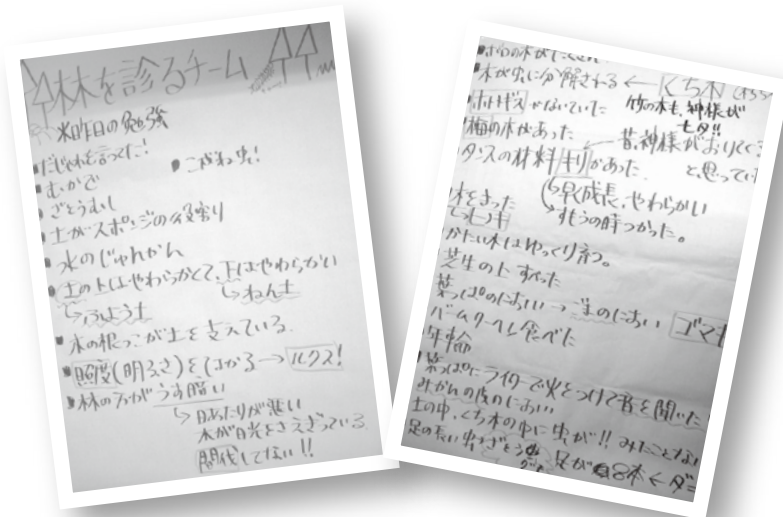 林を診るチーム
※昨日の勉強
だじゃれを言ってた!
むかで
こがね虫!
ざとうむし
土がスポンジの役割り
水のじゅんかん
土の上はやわらかくて、下はやわらかい
ふよう土
ねん土
木の根っこが土を支えている。
照度(明るさ)をはかる→ルクス!
林の方がうす暗い
日あたりが悪い
木が日光をさえぎっている
間伐してない!!
木が虫に分解される ← くち木
ホトトギスがないていた
竹の木も、神様が
七夕!!
梅の木があった
昔、神様がおりてくる
と思ってい
タンスの材料キリがあった。
早く成長、やわらかい
木をきった
かたい木はゆっくり育つ。
芝生の上すべった
葉っぱのにおい→ごまのにおい ゴマキ
バームクーヘン食べた
年輪
葉っぱにライターで火をつけて音を聞いた
みかんの皮のにおい
土の中、くち木の中に虫が!! みたことない
足の長い虫 ざとう虫 足が8本 ← ダニ